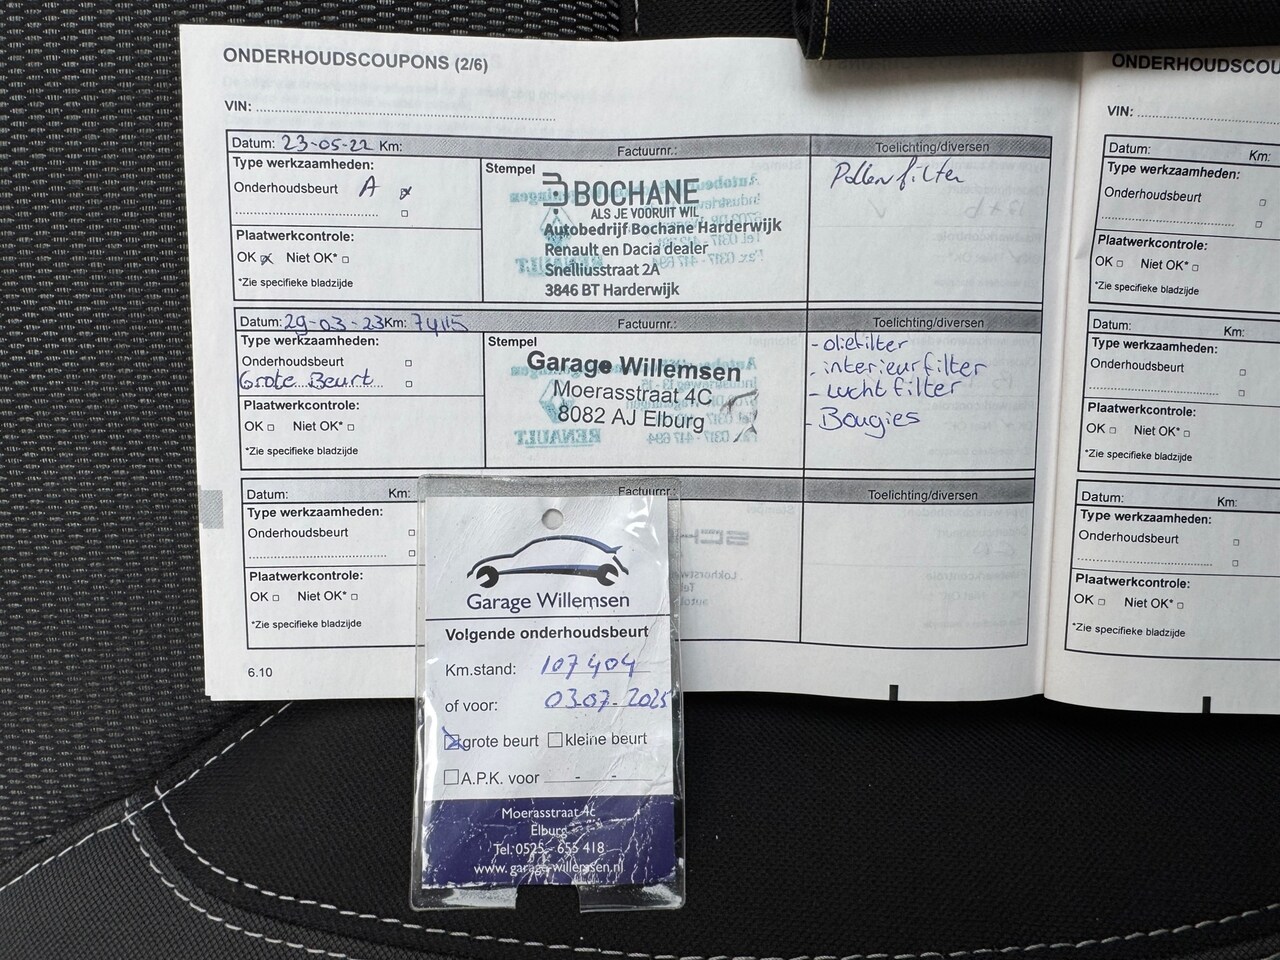 ONDERHOUDSCOUPONS (2/6)
VIN:
Datum: 23-05-22 Km: Factuurnr.: Toelichting/diversen
Type werkzaamheden:
Onderhoudsbeurt A
Stempel
BOCHANE
ALS JE VOORUIT WIL
Autobedrijf Bochane Harderwijk
Renault en Dacia dealer
Snelliusstraat 2A
3846 BT Harderwijk
Pollenfilter
Plaatwerkcontrole:
OK Niet OK*
*Zie specifieke bladzijde
Datum: 29-03-23 Km: 74115 Factuurnr.: Toelichting/diversen
Type werkzaamheden:
Onderhoudsbeurt
Grote Beurt
Stempel
Garage Willemsen
Moerasstraat 4C
8082 AJ Elburg
- oliefilter
- interieurfilter
- luchtfilter
- Bougies
Plaatwerkcontrole:
OK Niet OK*
*Zie specifieke bladzijde
Datum: Km: Factuurnr.: Toelichting/diversen
Type werkzaamheden:
Onderhoudsbeurt
Plaatwerkcontrole:
OK Niet OK*
*Zie specifieke bladzijde
6.10
Garage Willemsen
Volgende onderhoudsbeurt
Km.stand: 107404
of voor: 03-07-2025
grote beurt kleine beurt
A.P.K. voor - -
Moerasstraat 4c
Elburg
Tel. 0525 - 655 418
www.garage-willemsen.nl
ONDERHOUDSCOU
VIN:
Datum: Km:
Type werkzaamheden:
Onderhoudsbeurt
Plaatwerkcontrole:
OK Niet OK*
*Zie specifieke bladzijde
Datum: Km:
Type werkzaamheden:
Onderhoudsbeurt
Plaatwerkcontrole:
OK Niet OK*
*Zie specifieke bladzijde
Datum: Km:
Type werkzaamheden:
Onderhoudsbeurt
Plaatwerkcontrole:
OK Niet OK*
*Zie specifieke bladzijde